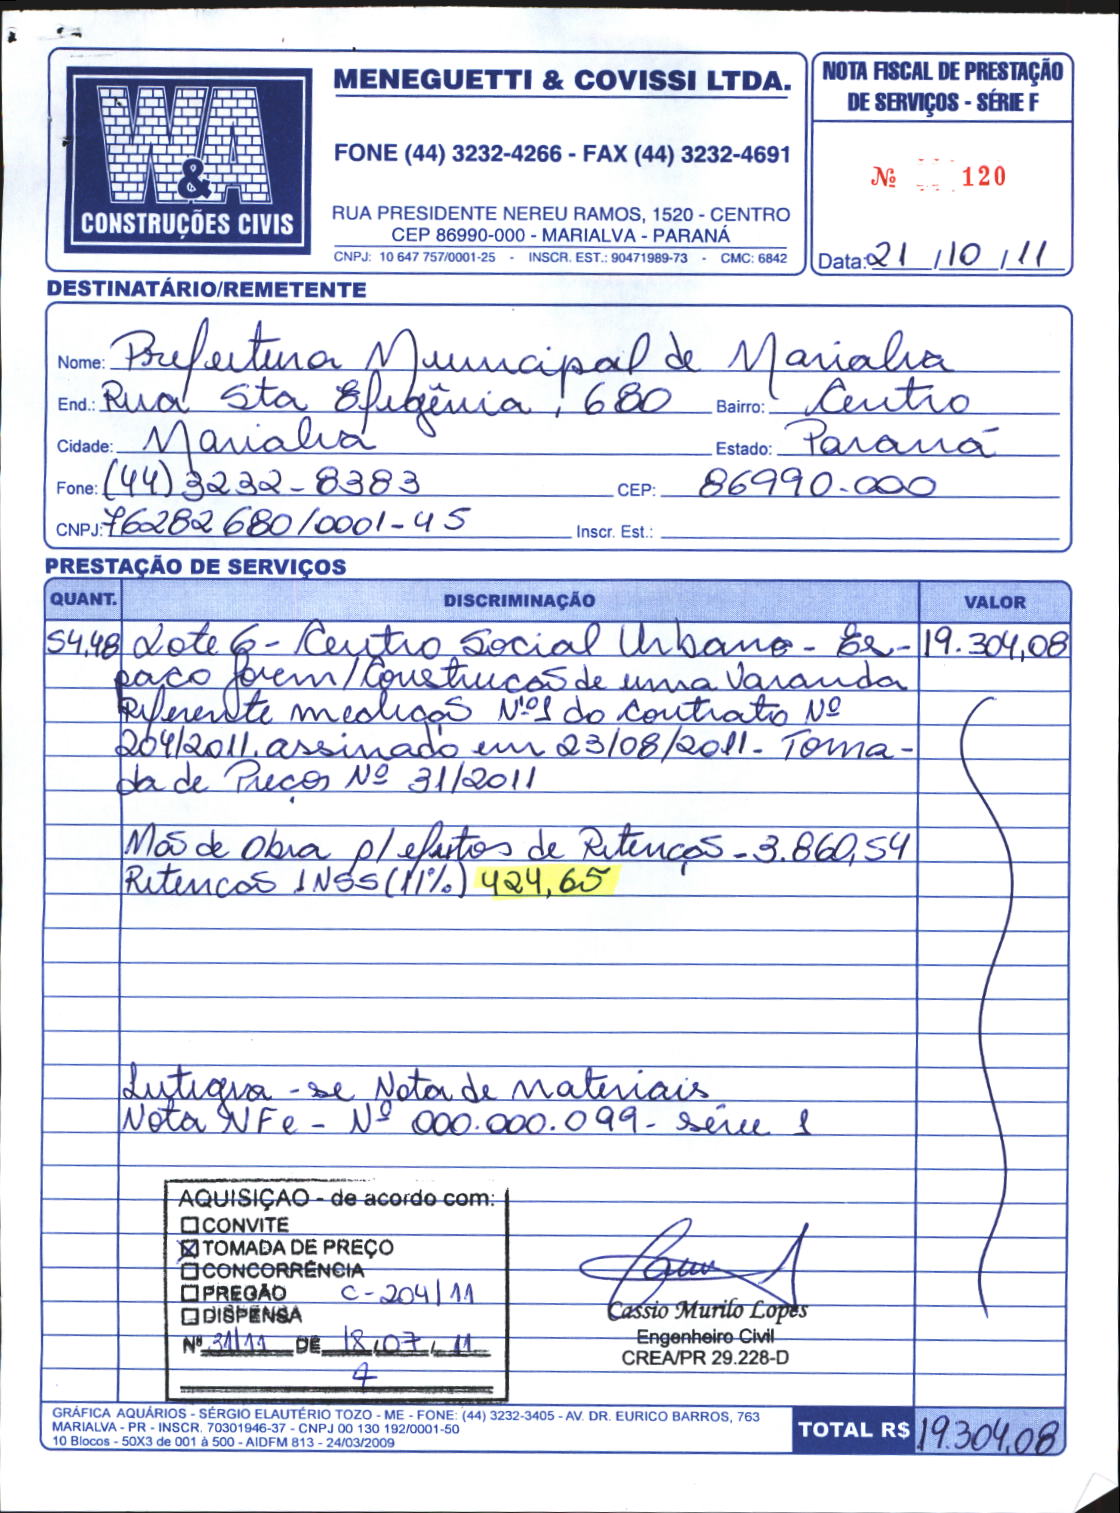 W&A
CONSTRUÇÕES CIVIS
MENEGUETTI & COVISSI LTDA.
FONE (44) 3232-4266 - FAX (44) 3232-4691
RUA PRESIDENTE NEREU RAMOS, 1520 - CENTRO
CEP 86990-000 - MARIALVA - PARANÁ
CNPJ: 10 647 757/0001-25 - INSCR. EST.: 90471989-73 - CMC: 6842
NOTA FISCAL DE PRESTAÇÃO
DE SERVIÇOS - SÉRIE F
Nº 120
Data: 21/10/11
DESTINATÁRIO/REMETENTE
Nome: Prefeitura Municipal de Marialva
End.: Rua Sta Efigênia, 680 Bairro: Centro
Cidade: Marialva Estado: Paraná
Fone: (44) 3232-8383 CEP: 86990-000
CNPJ: 76282680/0001-45 Inscr. Est.:
PRESTAÇÃO DE SERVIÇOS
QUANT. DISCRIMINAÇÃO VALOR
54,48 Lote 6 - Centro Social Urbano - Es- 19.304,08
paço Jovem/Construção de uma Varanda
Referente medição Nº1 do contrato Nº
204/2011 assinado em 23/08/2011 - Toma-
da de Preços Nº 31/2011
Mão de Obra p/ efeitos de Retenção - 3.860,54
Retenção INSS (11%) 424,65
Integra-se Nota de materiais
Nota NFe - Nº 000.000.099 - série 1
AQUISIÇÃO - de acordo com:
☐ CONVITE
☒ TOMADA DE PREÇO
☐ CONCORRÊNCIA
☐ PREGÃO C-204/11
☐ DISPENSA
Nº 31/11 DE 18/07/11
Cassio Murilo Lopes
Engenheiro Civil
CREA/PR 29.228-D
GRÁFICA AQUÁRIOS - SÉRGIO ELAUTÉRIO TOZO - ME - FONE: (44) 3232-3405 - AV. DR. EURICO BARROS, 763
MARIALVA - PR - INSCR. 70301946-37 - CNPJ 00 130 192/0001-50
10 Blocos - 50X3 de 001 à 500 - AIDFM 813 - 24/03/2009
TOTAL R$ 19.304,08